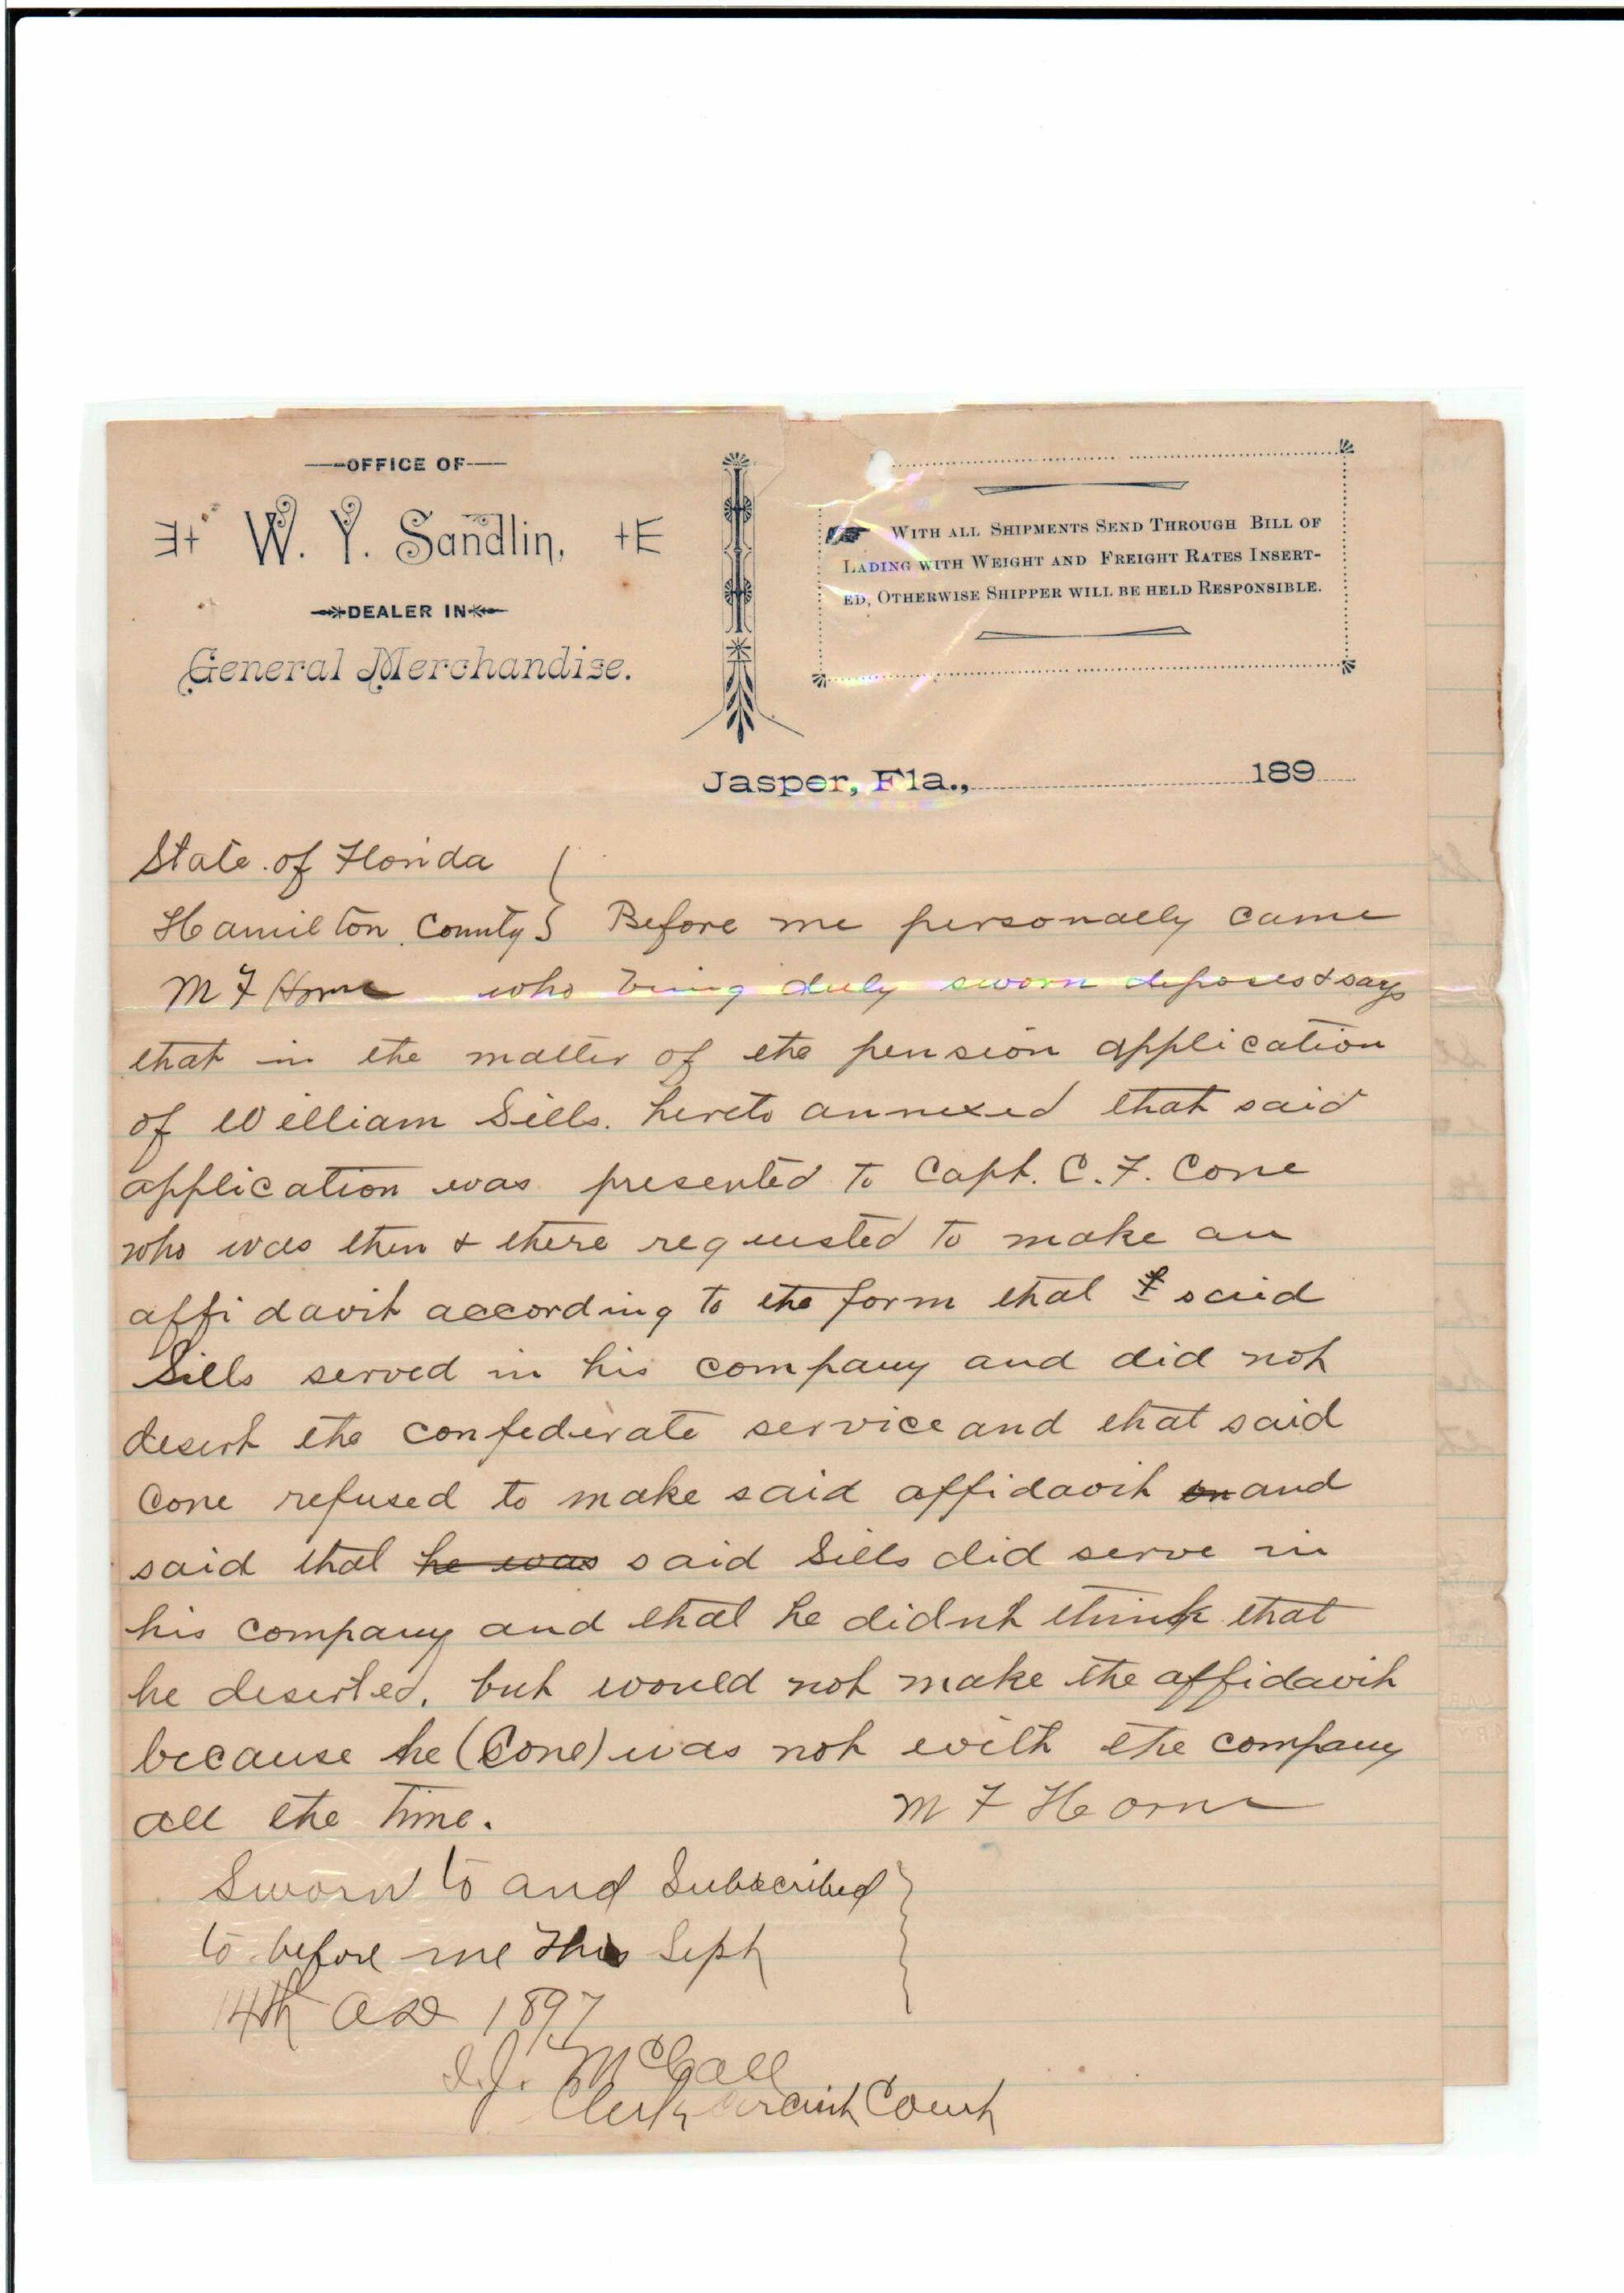 OFFICE OF
W. Y. Sandlin,
DEALER IN
General Merchandise.
WITH ALL SHIPMENTS SEND THROUGH BILL OF
LADING WITH WEIGHT AND FREIGHT RATES INSERT-
ED, OTHERWISE SHIPPER WILL BE HELD RESPONSIBLE.
Jasper, Fla., 189
State of Florida
Hamilton County } Before me personally came
M F Horne who being duly sworn deposes & says
that in the matter of the pension application
of William Sills. hereto annexed that said
application was presented to Capt. C. F. Cone
who was then & there requested to make an
affidavit according to the form that said
Sills served in his company and did not
desert the confederate service and that said
Cone refused to make said affidavit on and
said that he was said Sills did serve in
his company and that he didnt think that
he deserted, but would not make the affidavit
because he (Cone) was not with the company
all the time. M F Horne
Sworn to and Subscribed
to before me This Sept
14th AD 1897
McCall
Clerk Circuit Court